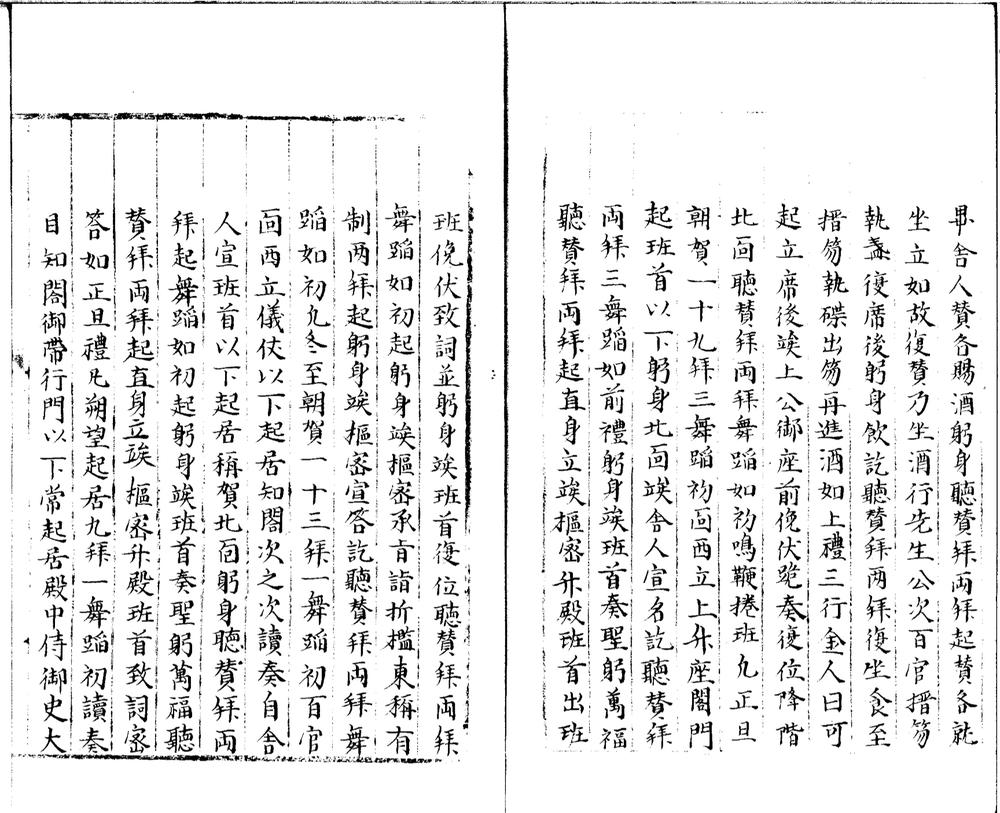 畢舎人賛各賜酒躬身聽賛拜两拜起賛各就
坐立如故復賛乃坐酒行先生公次百官搢笏
執盞復席後躬身飲訖聽賛拜两拜復坐食至
搢笏執楪出笏再進酒如上禮三行金人曰可
起立席後竢上公御座前俛伏跪奏復位降階
北面聽賛拜两拜舞蹈如初鳴鞭捲班凢正旦
朝賀一十九拜三舞蹈初面西立上升座閤門
起班首以下躬身北面竢舎人宣名訖聽賛拜
两拜三舞蹈如前禮躬身竢班首奏聖躬萬福
聽賛拜两拜起直身立竢樞密升殿班首出班
班俛伏致詞並躬身竢班首復位聽賛拜两拜
舞蹈如初起躬身竢樞密承旨詣折檻東稱有
制两拜起躬身竢樞密宣答訖聽賛拜两拜舞
蹈如初凢冬至朝賀一十三拜一舞蹈初百官
面西立儀仗以下起居知閤次之次讀奏自舎
人宣班首以下起居稱賀北面躬身聽賛拜两
拜起舞蹈如初起躬身竢班首奏聖躬萬福聽
賛拜两拜起直身立竢樞密升殿班首致詞密
答如正旦禮凢朔望起居九拜一舞蹈初讀奏
目知閤御帶行門以下常起居殿中侍御史大